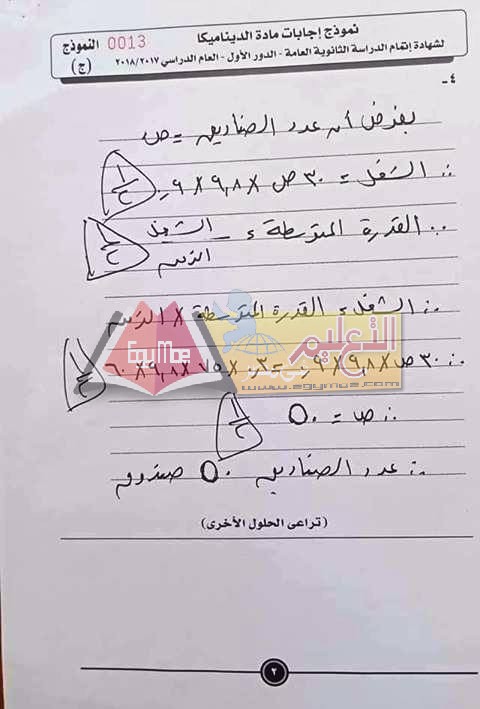 نموذج إجابات مادة الديناميكا
لشهادة إتمام الدراسة الثانوية العامة - الدور الأول - العام الدراسي ٢٠١٨/٢٠١٧
0013 النموذج
(ج)
٤-
بفرض أن عدد الصناديق = ص
∴ الشغل = ٣٠ ص × ٩,٨ × ٠,٩
١/٢
∵ القدرة المتوسطة = الشغل / الزمن
١/٢
∴ الشغل = القدرة المتوسطة × الزمن
∴ ٣٠ ص × ٩,٨ × ٠,٩ = ٠,٣ × ٧٥ × ٩,٨ × ٦٠
١/٢
∴ ص = ٥٠
١/٢
∴ عدد الصناديق ٥٠ صندوق
Egymoe
التعليم
www.egymoe.com
(تراعى الحلول الأخرى)
٢